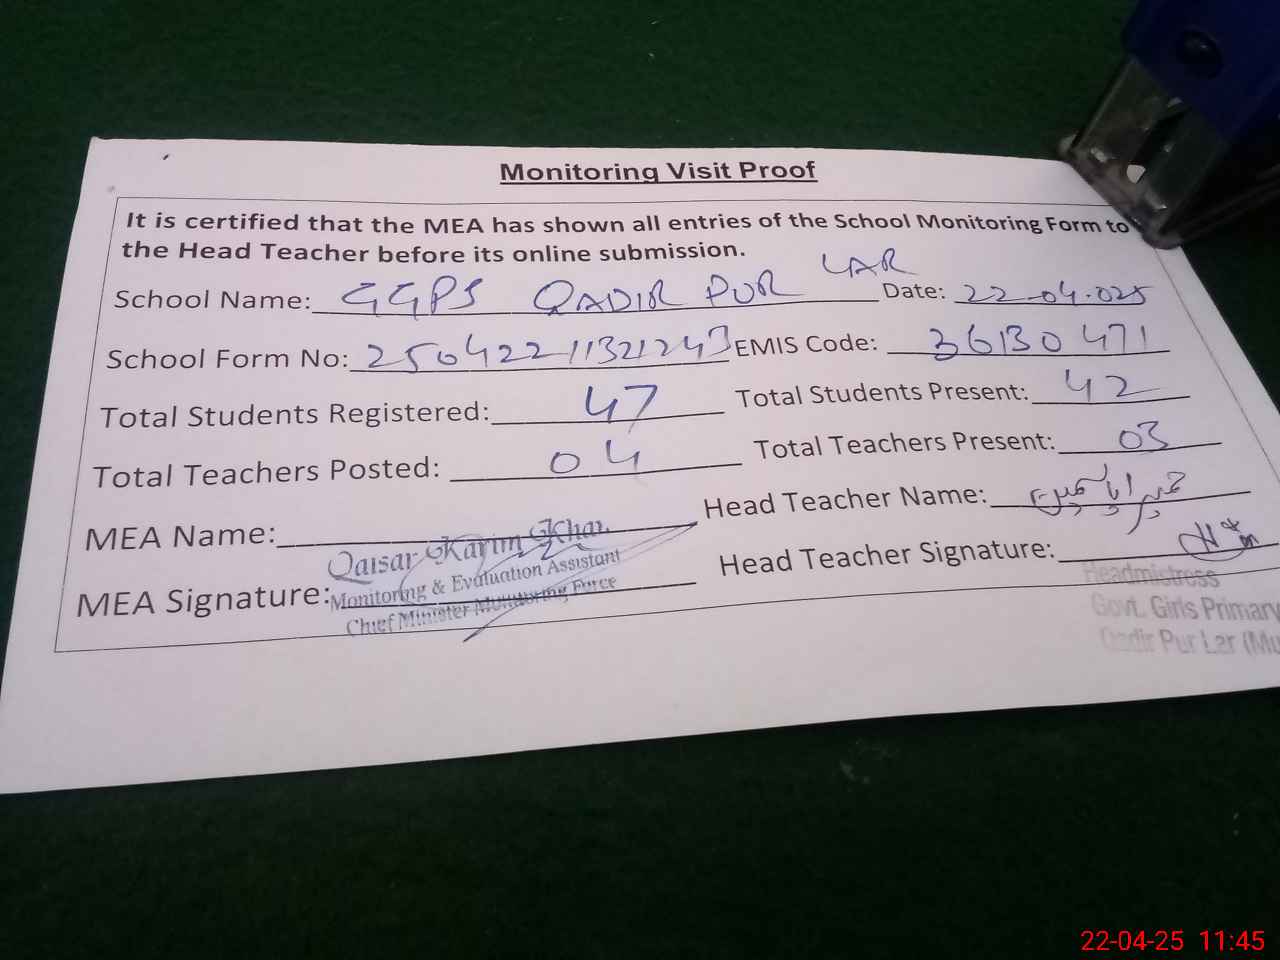 Monitoring Visit Proof
It is certified that the MEA has shown all entries of the School Monitoring Form to
the Head Teacher before its online submission.
School Name: GGPS QADIR PUR LAR Date: 22-04-025
School Form No: 25042211321243 EMIS Code: 36130471
Total Students Registered: 47 Total Students Present: 42
Total Teachers Posted: 04 Total Teachers Present: 03
MEA Name: Head Teacher Name:
Qaisar Karim Khan
MEA Signature: Head Teacher Signature:
Monitoring & Evaluation Assistant
Chief Minister Monitoring Force
Headmistress
Govt. Girls Primary
Qadir Pur Lar (Mu
22-04-25 11:45